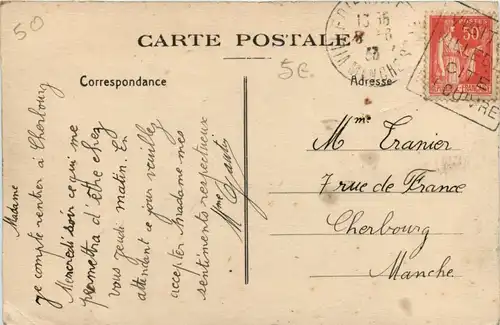 50
CARTE POSTALE
5€
Correspondance
Adresse
13 15
MANCHE
POSTES
50c
Madame
je compte rentrer à Cherbourg
Mercredi soir ce qui me
permettra d'être chez
vous jeudi matin. En
attendant ce jour veuillez
accepter Madame mes
sentiments respectueux
Mme
Mme Tranier
7 rue de France
Cherbourg
Manche